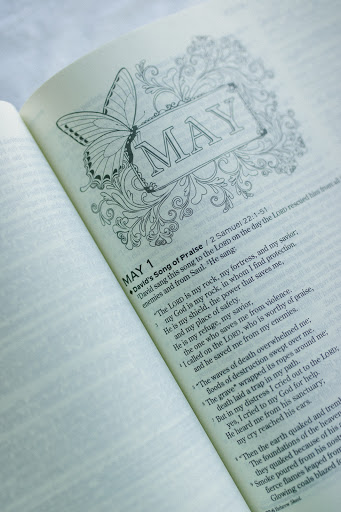 MAY
MAY 1
David's Song of Praise / 2 Samuel 22:1-51
¹David sang this song to the LORD on the day the LORD rescued him from all
enemies and from Saul. ²He sang:
"The LORD is my rock, my fortress, and my savior;
³ my God is my rock, in whom I find protection.
He is my shield, the power that saves me,
and my place of safety.
He is my refuge, my savior,
the one who saves me from violence.
⁴ I called on the LORD, who is worthy of praise,
and he saved me from my enemies.
⁵ "The waves of death overwhelmed me;
floods of destruction swept over me.
⁶ The grave* wrapped its ropes around me;
death laid a trap in my path.
⁷ But in my distress I cried out to the LORD;
yes, I cried to my God for help.
He heard me from his sanctuary;
my cry reached his ears.
⁸ "Then the earth quaked and
The foundations of the heavens
they quaked because of his
⁹ Smoke poured from his
fierce flames leaped from
Glowing coals blazed